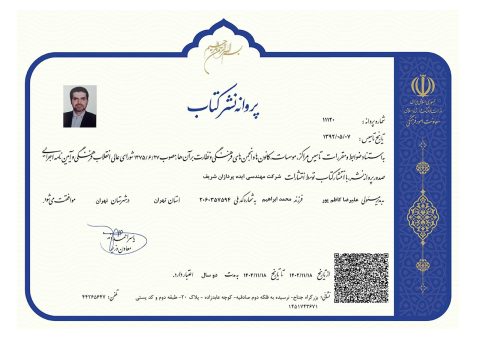 بسم الله الرحمن الرحیم
پروانه نشر کتاب
جمهوری اسلامی ایران
وزارت فرهنگ و ارشاد اسلامی
معاونت امور فرهنگی
شماره پروانه: ۱۱۱۲۰
تاریخ تاسیس: ۱۳۹۲/۰۵/۰۷
به استناد ضوابط و مقررات تاسیس مراکز، موسسات، کانون ها و انجمن های فرهنگی و نظارت بر آن ها مصوب ۱۳۷۵/۶/۲۷ شورای عالی انقلاب فرهنگی و آیین نامه اجرایی
صدور پروانه نشر، با انتشار کتاب توسط انتشارات شرکت مهندسی ایده پردازان شریف
به مدیر مسئولی علیرضا کاظم پور فرزند محمد ابراهیم به شماره ملی استان تهران در شهرستان تهران موافقت می شود
از تاریخ ۱۴۰۲/۱۱/۱۸ تا تاریخ ۱۴۰۴/۱۱/۱۸ به مدت دو سال اعتبار دارد.
نشانی: بزرگراه جناح- نرسیده به فلکه دوم صادقیه- کوچه عابدزاده - پلاک ۲۰- طبقه دوم و کد پستی تلفن: ۴۴۲۶۵۶۴۷
۱۴۵۱۷۴۳۶۷۱